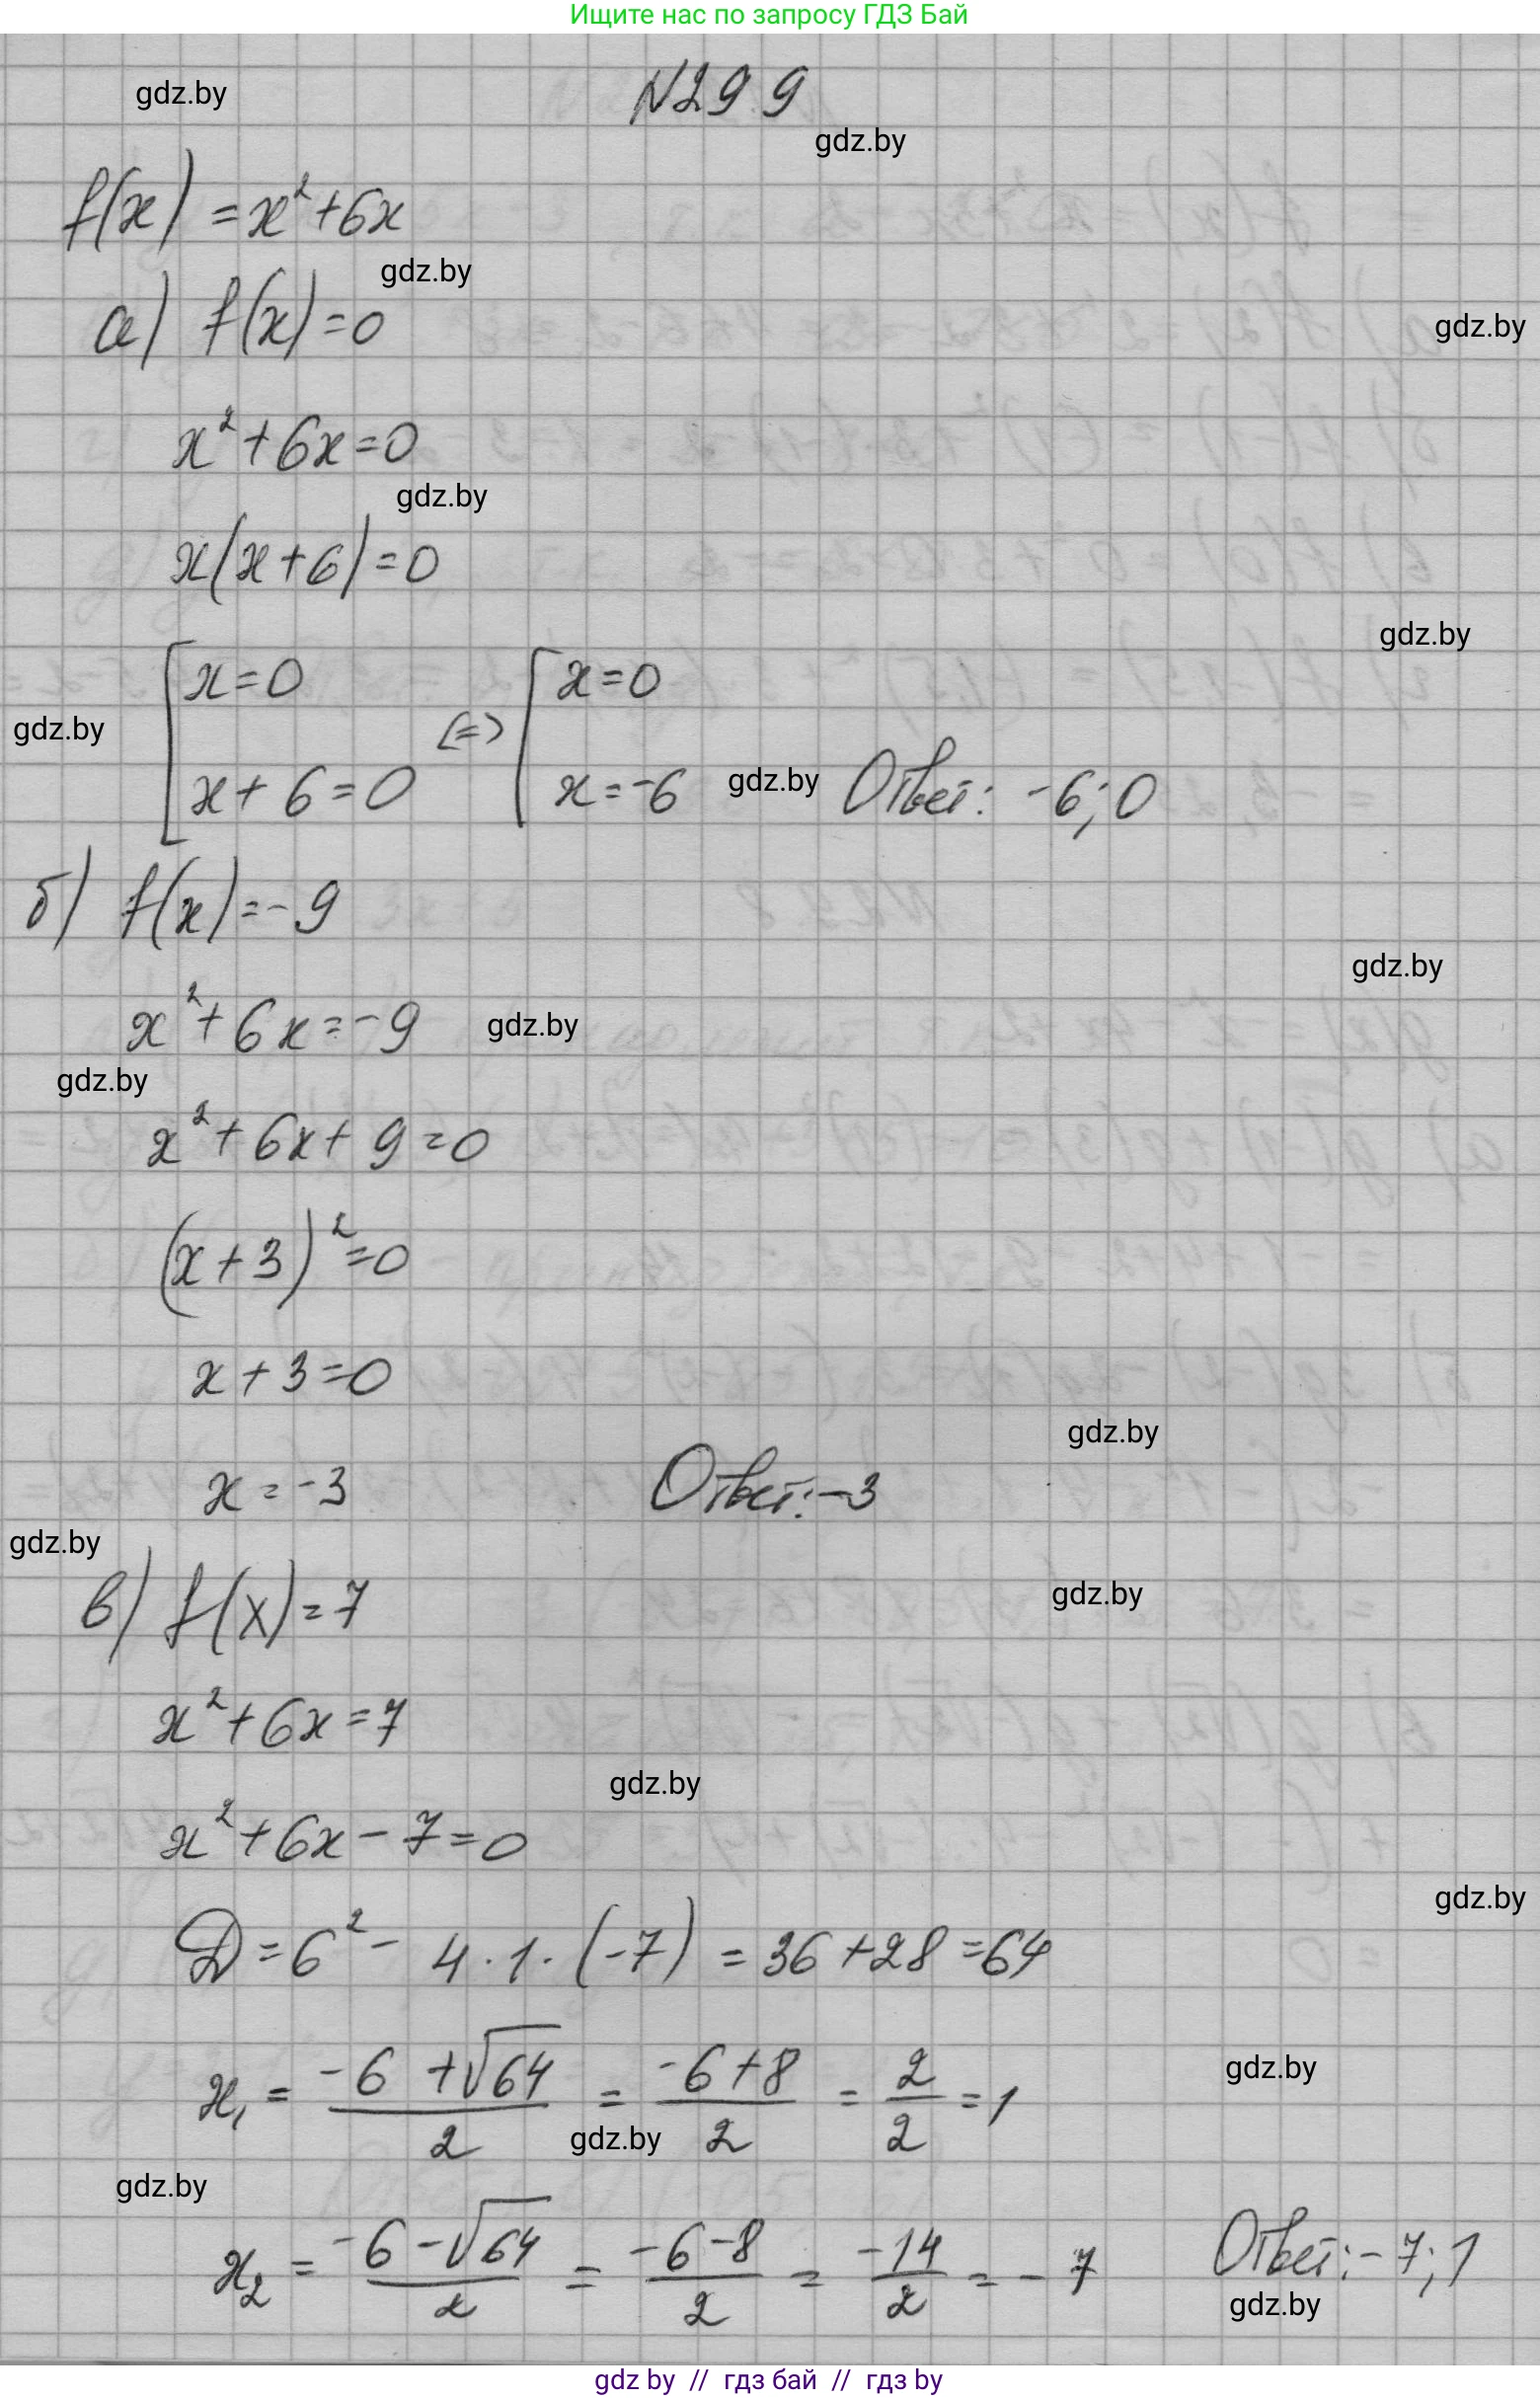 Ищите нас по запросу ГДЗ Бай
№29.9
gdz.by
gdz.by
f(x) = x²+6x
gdz.by
а) f(x)=0
gdz.by
x²+6x=0
gdz.by
x(x+6)=0
gdz.by
[x=0
x+6=0 <=> [x=0
x=-6
gdz.by
gdz.by
Ответ: -6; 0
б) f(x)=-9
gdz.by
x²+6x=-9
gdz.by
gdz.by
x²+6x+9=0
(x+3)²=0
x+3=0
gdz.by
x=-3
Ответ: -3
gdz.by
в) f(x)=7
gdz.by
x²+6x=7
gdz.by
x²+6x-7=0
gdz.by
D=6²-4·1·(-7)=36+28=64
x₁ = (-6+√64)/2 = (-6+8)/2 = 2/2 = 1
gdz.by
gdz.by
gdz.by
x₂ = (-6-√64)/2 = (-6-8)/2 = -14/2 = -7
Ответ: -7; 1
gdz.by
gdz by // гдз бай // гдз by